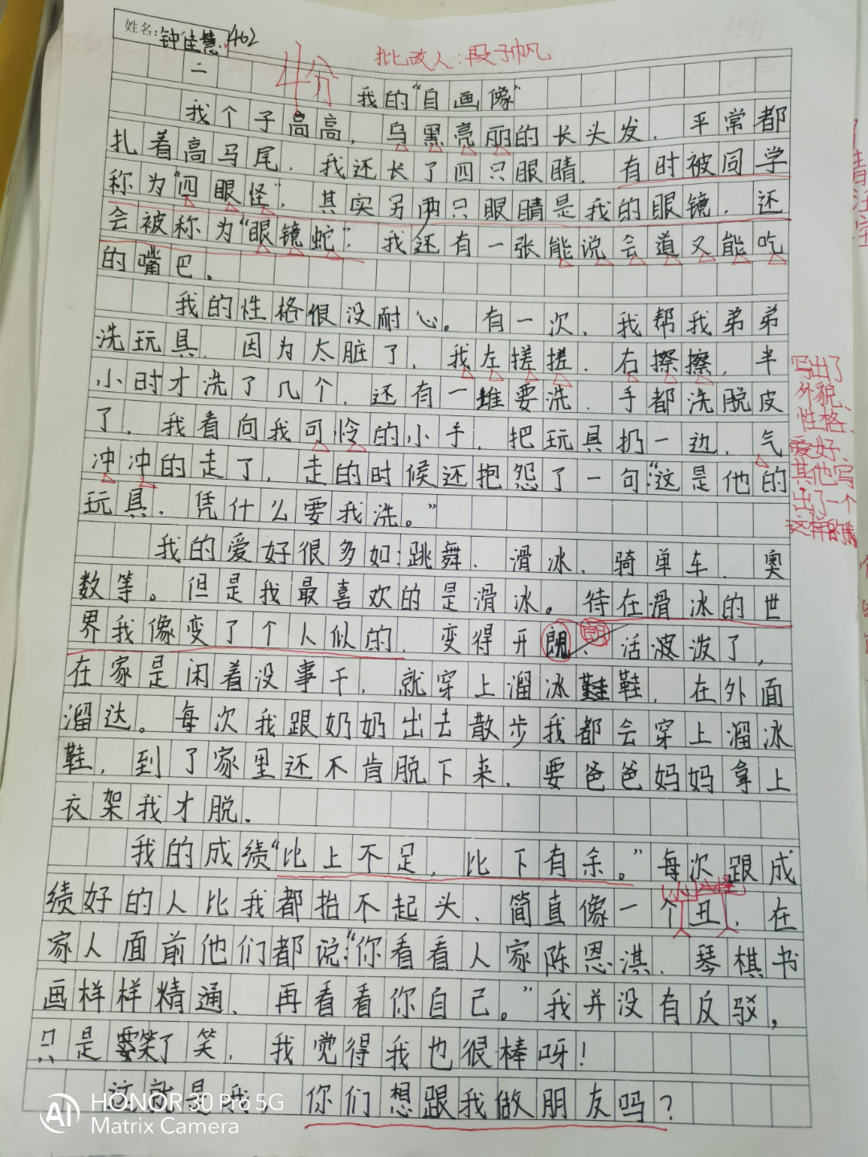 姓名:钟佳慧 1462
批改人:段子帆
4分
二
我的“自画像”
我个子高高,乌黑亮丽的长头发,平常都
扎着高马尾,我还长了四只眼睛,有时被同学
称为“四眼怪”,其实另两只眼睛是我的眼镜,还
会被称为“眼镜蛇”。我还有一张能说会道又能吃
的嘴巴。
我的性格很没耐心。有一次,我帮我弟弟
洗玩具,因为太脏了,我左搓搓,右擦擦,半
小时才洗了几个,还有一堆要洗,手都洗脱皮
了,我看向我可怜的小手,把玩具扔一边,气
冲冲的走了,走的时候还抱怨了一句:“这是他的
玩具,凭什么要我洗。”
写出了
外貌、
性格、
爱好、
其他写
出了一个
这样的
我的爱好很多如:跳舞、滑冰、骑单车、奥
数等。但是我最喜欢的是滑冰。待在滑冰的世
界我像变了个人似的,变得开朗活波泼了,
在家是闲着没事干,就穿上溜冰鞋鞋,在外面
溜达。每次我跟奶奶出去散步我都会穿上溜冰
鞋,到了家里还不肯脱下来,要爸爸妈妈拿上
衣架我才脱.
我的成绩“比上不足,比下有余。”每次跟成
绩好的人比我都抬不起头、简直像一个丑,在
家人面前他们都说:“你看看人家陈恩淇,琴棋书
画样样精通,再看看你自己。”我并没有反驳,
只是笑了笑,我觉得我也很棒呀!
这就是我,你们想跟我做朋友吗?
HONOR 30 Pro 5G
Matrix Camera